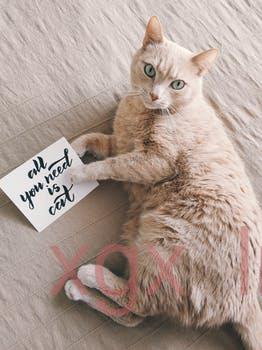 all
you need
is
cat
xgx l